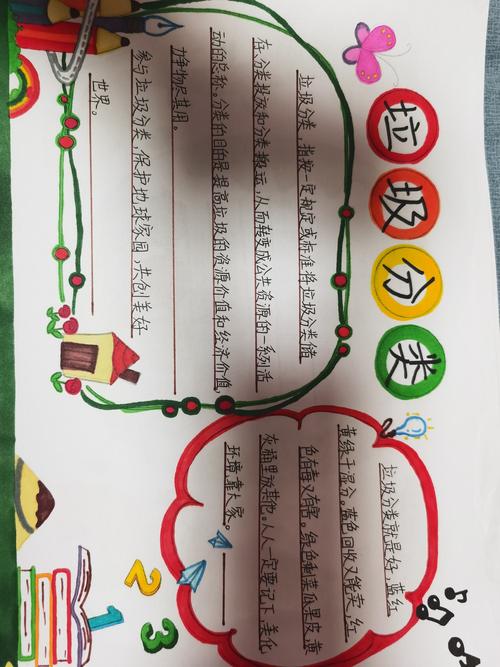 垃圾分类
垃圾分类，指按一定规定或标准将垃圾分类储
存、分类投放和分类搬运，从而转变成公共资源的一系列活
动的总称。分类的目的是提高垃圾的资源价值和经济价值，
力争物尽其用。
参与垃圾分类，保护地球家园，共创美好
世界。
垃圾分类就是好，蓝红
黄绿干湿分。蓝色回收又能卖，红
色有毒又有害。绿色剩菜瓜果皮，黄
灰桶里放其他。人人一定要记下，美化
环境靠大家。
1
2
3